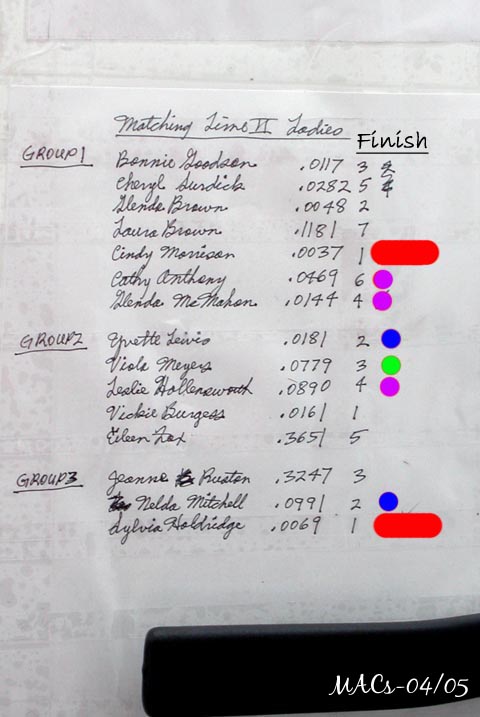 Matching Time II Ladies Finish
GROUP 1 Bonnie Goodson .0117 3
Cheryl Surdick .0282 5
Glenda Brown .0048 2
Laura Brown .1181 7
Cindy Morrison .0037 1
Cathy Anthony .0469 6
Glenda McMahon .0144 4
GROUP 2 Yvette Lewis .0181 2
Viola Meyers .0779 3
Leslie Hollensworth .0890 4
Vickie Burgess .0161 1
Eileen Fox .3651 5
GROUP 3 Jeanne Ruston .3247 3
Nelda Mitchell .0991 2
Sylvia Holdridge .0069 1
MACs-04/05